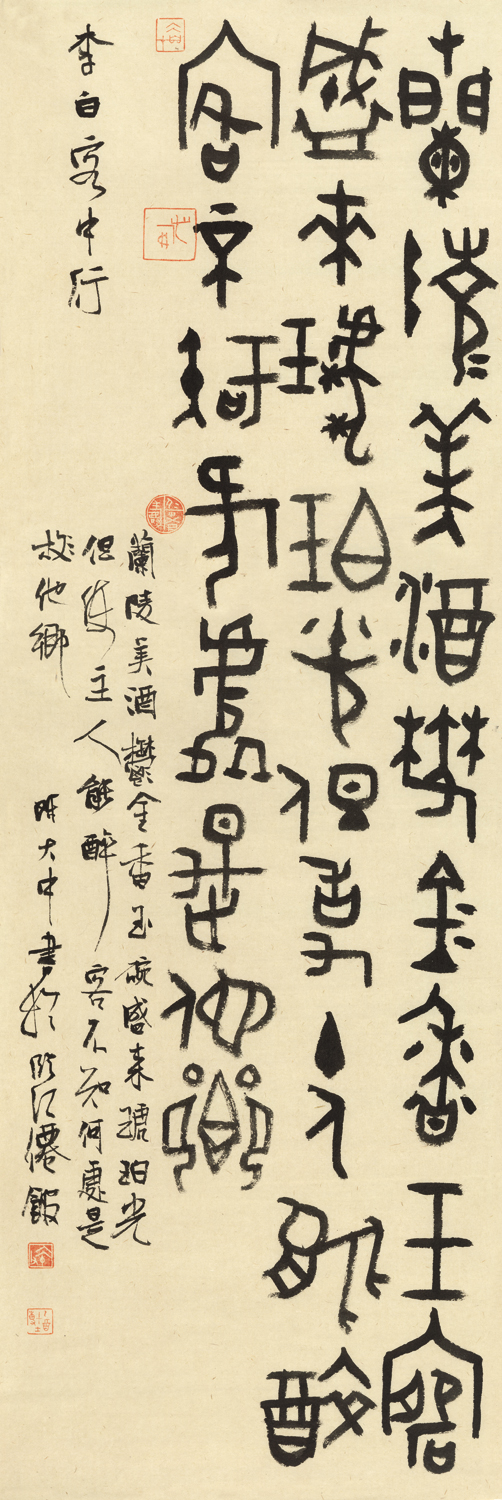 蘭陵美酒鬱金香玉碗
盛來琥珀光但使主人能醉
客不知何處是他鄉
李白客中行
蘭陵美酒鬱金香玉碗盛来琥珀光
但使主人能醉客不知何處是
他鄉
大中書於临江僊館